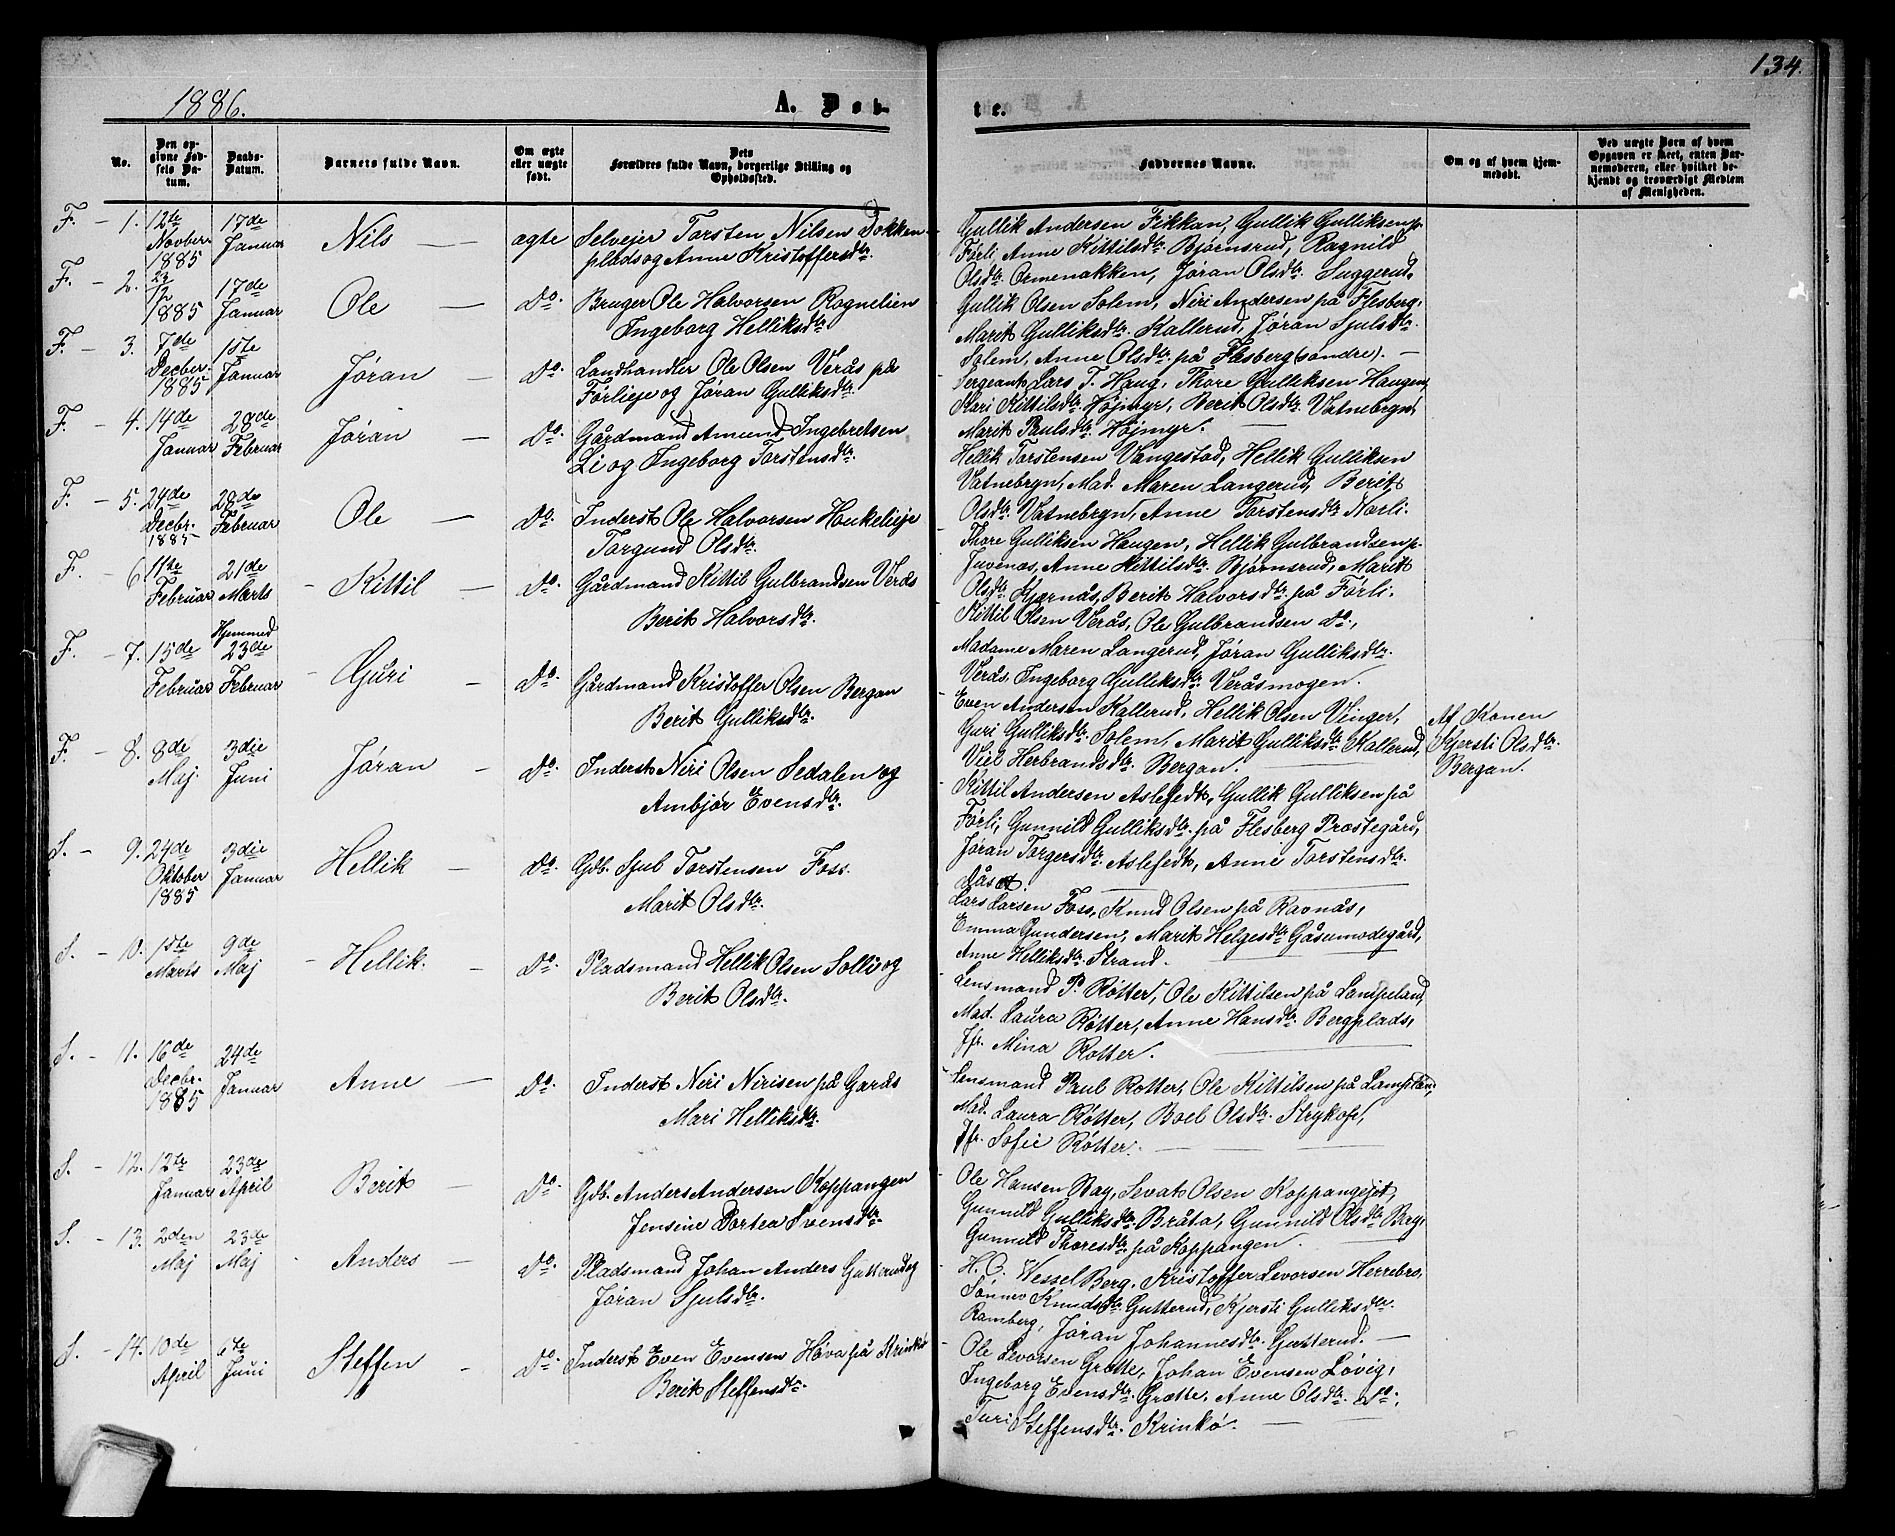 134.
1886.
A. Døb-
te.
No.
Den op-
givne Fød-
sels Da-
tum.
Daabs-
Datum.
Barnets fulde Navn.
Om ægte
eller uægte
født.
Dets
Forældres fulde Navn, borgerlige Stilling og
Opholdssted.
Faddernes Navne.
Om og af hvem hjem-
medøbt.
Ved uægte Børn af hvem
Opgaven er skeet, enten Bar-
nemoderen, eller hvilket be-
kjendt og troværdigt Medlem
af Menigheden.
F. - 1. 12te Novber. 1885 17de Januar Nils — ægte Selveier Torsten Nilsen Dokken-
plads og Anne Kristoffersdtr.
Gullik Andersen Fikkan, Gullik Gulliksen p.
Førli, Anne Kittilsdtr. Bjørnsrud, Ragnild
Olsdtr. Ormenakken, Jøran Olsdtr. Suggerud,
F. - 2. 23/12 1885 17de Januar Ole — Do. Bruger Ole Halvorsen Rognelien
Ingeborg Helliksdtr.
Gullik Olsen Solem, Niri Andersen på Flesberg,
Marit Gulliksdtr. Kallerud, Jøran Sjulsdtr.
Solem, Anne Olsdtr. på Flesberg (søndre). —
F. - 3. 7de Decber. 1885 1ste Januar Jøran — Do. Landhandler Ole Olsen Verås på
Førlieje og Jøran Gulliksdtr.
Sergeant Lars T. Haug, Thore Gulliksen Haugen,
Kari Kittilsdtr. Højmyr, Berit Olsdtr. Vatnebryn,
Marit Paulsdtr. Højmyr. —
F. - 4. 14de Januar 28de Februar Jøran — Do. Gårdmand Amund Ingebretsen
Li og Ingeborg Torstensdtr.
Hellik Torstensen Vangestad, Hellik Gulliksen
Vatnebryn, Mad. Maren Langerud, Berit
Olsdtr. Vatnebryn, Anne Torstensdtr. Norli.
F. - 5. 24de Decbr. 1885 28de Februar Ole — Do. Inderst Ole Halvorsen Haukelieje
Torgund Olsdtr.
Thore Gulliksen Haugen, Hellik Gulbrandsen p.
Juvenas, Anne Kittilsdtr. Bjørnsrud, Marit
Olsdtr. Kjærnås, Berit Halvorsdtr. på Førli.
F. - 6. 11te Februar 21de Marts - Kittil — Do. Gårdmand Kittil Gulbrandsen Verås
Berit Halvorsdtr.
Kittil Olsen Verås, Ole Gulbrandsen do.,
Madame Maren Langerud, Jøran Gulliksdtr.
Verås, Ingeborg Gulliksdtr. Veråsmogen.
F. - 7. 15de Februar Hjemmed 23de Februar - Guri - Do. Gårdmand Kristoffer Olsen Bergan
Berit Gulliksdtr.
Even Andersen Kallerud, Hellik Olsen Vinger,
Guri Gulliksdtr. Solem, Marit Gulliksdtr. Kallerud,
Viel Herbrandsdtr. Bergan.
Af Konen
Kjersti Olsdtr.
Bergan.
F. - 8. 8de Maj. 3die Juni Jøran - Do. Inderst Niri Olsen Sedalen og
Ambjør Evensdtr.
Kittil Andersen Aslefedt, Gullik Gulliksen på
Førli, Gunnild Gulliksdtr. på Flesberg Præstegård,
Jøran Torgersdtr. Aslefedt, Anne Torstensdtr.
Åset.
S. - 9. 24de Oktober 1885 3die Januar Hellik — Do. Gdb. Sjul Torstensen Foss.
Marit Olsdtr.
Lars Larsen Foss, Knud Olsen på Ravnås,
Emma Gundersen, Marit Helgesdtr. Gåsumodegård,
Anne Helliksdtr. Strand.
S. - 10. 1ste Marts 9de Maj - Hellik. - Do. Pladsmand Hellik Olsen Solli og
Berit Olsdtr.
Lensmand P. Røtter, Ole Kittilsen på Lampeland,
Mad. Laura Røtter, Anne Hansdtr. Bergplads,
Jfr. Mina Rotter.
S. - 11. 16de Decbr. 1885 24de Januar Anne — Do. Inderst Niri Nirisen på Garås
Mari Helliksdtr.
Lensmand Paul Rotter, Ole Kittilsen på Lampelan,
Mad. Laura Røtter, Boel Olsdtr. Strykop,
Jfr. Sofie Røtter. —
S. - 12. 12te Januar 23de April Berit — Do. Gdb. Anders Andersen Koppangen
Jensine Dortea Svensdtr.
Ole Hansen Bay, Sevat Olsen Koppangejet,
Gunnild Gulliksdtr. Bråta, Gunnild Olsdtr. Berg,
Gunnild Thoresdtr. på Koppangen.
S. - 13. 2den Maj 23de Maj Anders — Do. Pladsmand Johan Anders Gutterud og
Jøran Sjulsdtr.
H. C. Wessel Berg, Kristoffer Levorsen Herrebro,
Sønnev Knudsdtr. Gutterud, Kjersti Gulliksdtr.
Ramberg, Jøran Johannesdtr. Gutterud. —
S. - 14. 10de April 6te Juni Steffen - Do. Inderst Even Evensen Høva på Krinkø
Berit Steffensdtr.
Ole Levorsen Grette, Johan Evensen Løvig,
Ingeborg Evensdtr. Grette, Anne Olsdtr. do.
Turi Steffensdtr. Krinkø. —